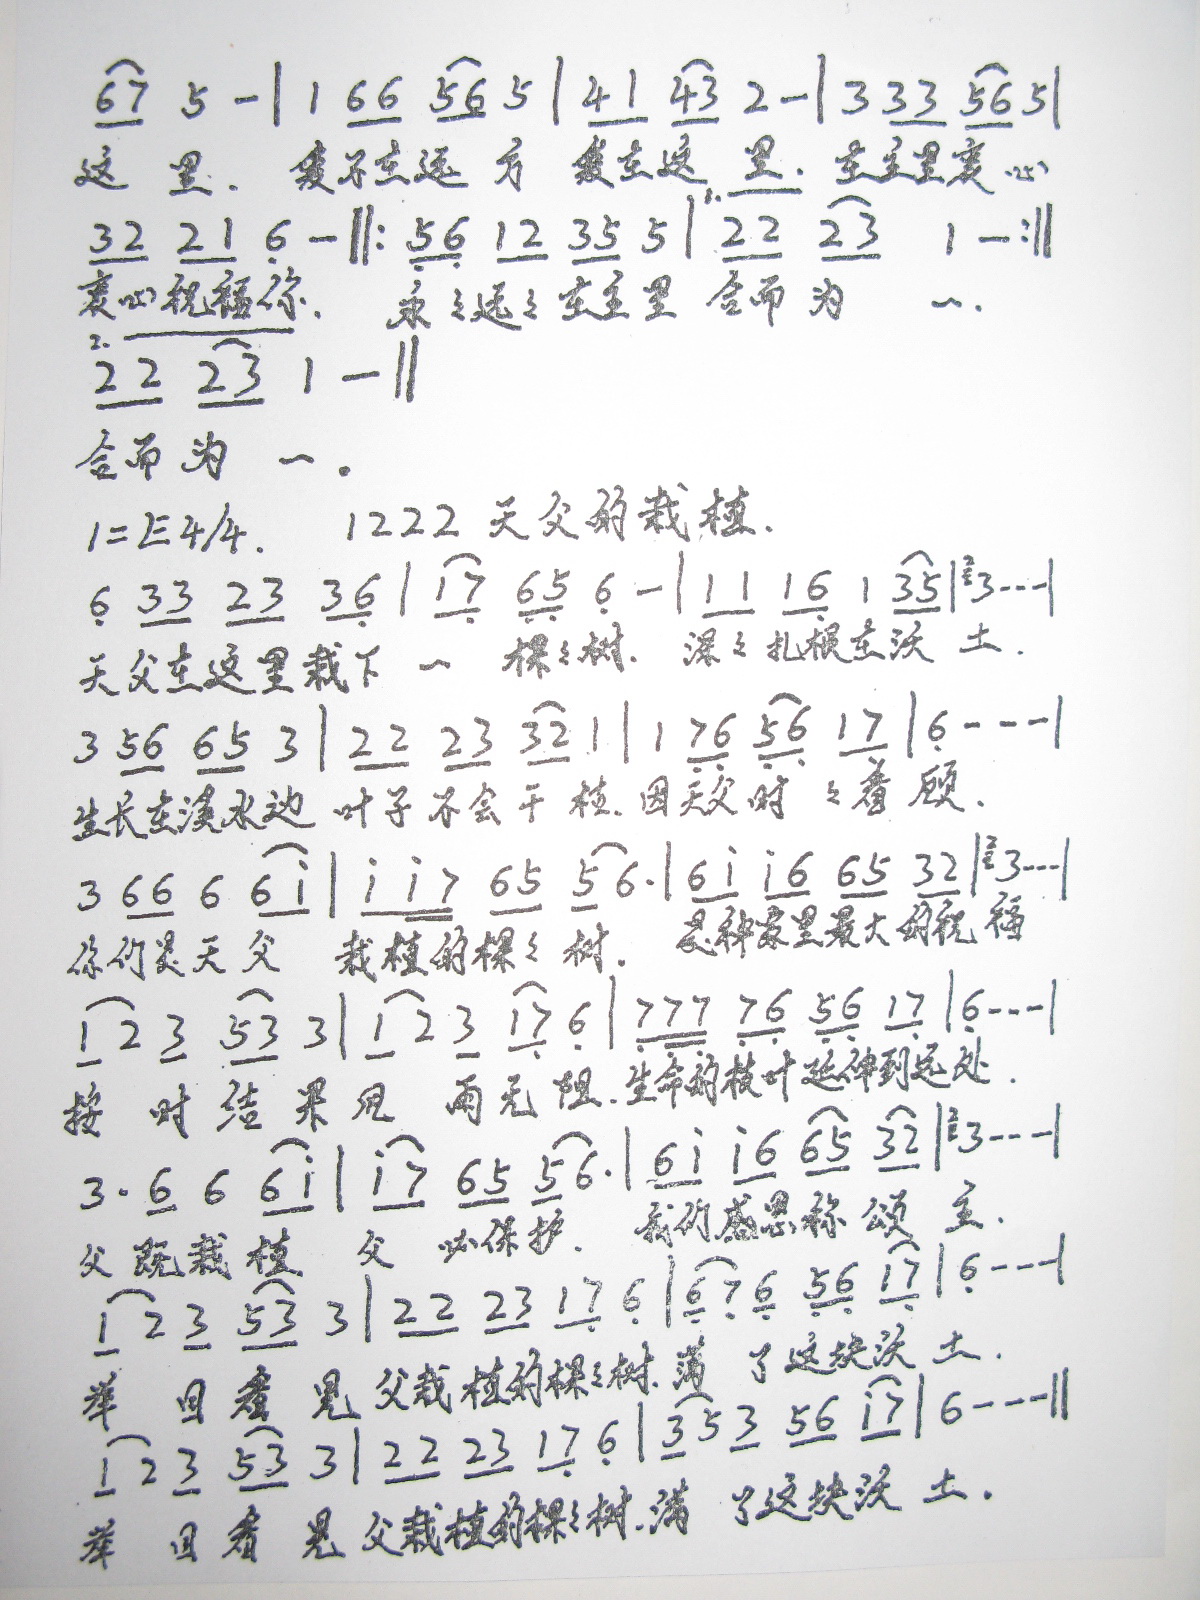 67 5 - | 1 66 56 5 | 41 43 2 - | 3 33 56 5 |
这 里. 爱不在远 方 爱在这 里. 在主里衷心
1.
32 21 6 - ‖: 56 12 35 5 | 22 23 1 - :‖
衷心祝福你. 永々远々在主里 合而为 一.
2.
22 23 1 - ‖
合而为 一.
1=E 4/4. 1222 天父的栽植.
6 33 23 36 | 17 65 6 - | 11 16 1 35 | 3 - - - |
天父在这里栽下 一 棵々树. 深々扎根在沃 土.
3 56 65 3 | 22 23 32 1 | 1 76 56 17 | 6 - - - |
生长在溪水边 叶子不会干枯. 因天父时々看顾.
3 66 6 6i | i i7 65 56. | 6i i6 65 32 | 3 - - - |
你们是天父 栽植的棵々树. 是神家里最大的祝福
1 2 3 53 3 | 1 2 3 17 6 | 777 76 56 17 | 6 - - - |
按 时 结 果儿 两无阻. 生命的枝叶延伸到远处.
3. 6 6 6i | i7 65 56. | 6i i6 65 32 | 3 - - - |
父既栽植 父 必保护. 我们感恩称颂 主.
1 2 3 53 3 | 22 23 17 6 | 6 7 6 56 17 | 6 - - - |
举 目 看 见 父栽植的棵々树. 满 了这块沃 土.
1 2 3 53 3 | 22 23 17 6 | 3 5 3 56 i7 | 6 - - - ‖
举 目 看 见 父栽植的棵々树. 满 了这块沃 土.